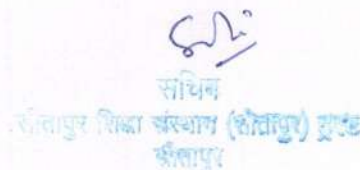 सचिव
सीतापुर शिक्षा संस्थान (सीतापुर) ट्रस्ट
सीतापुर